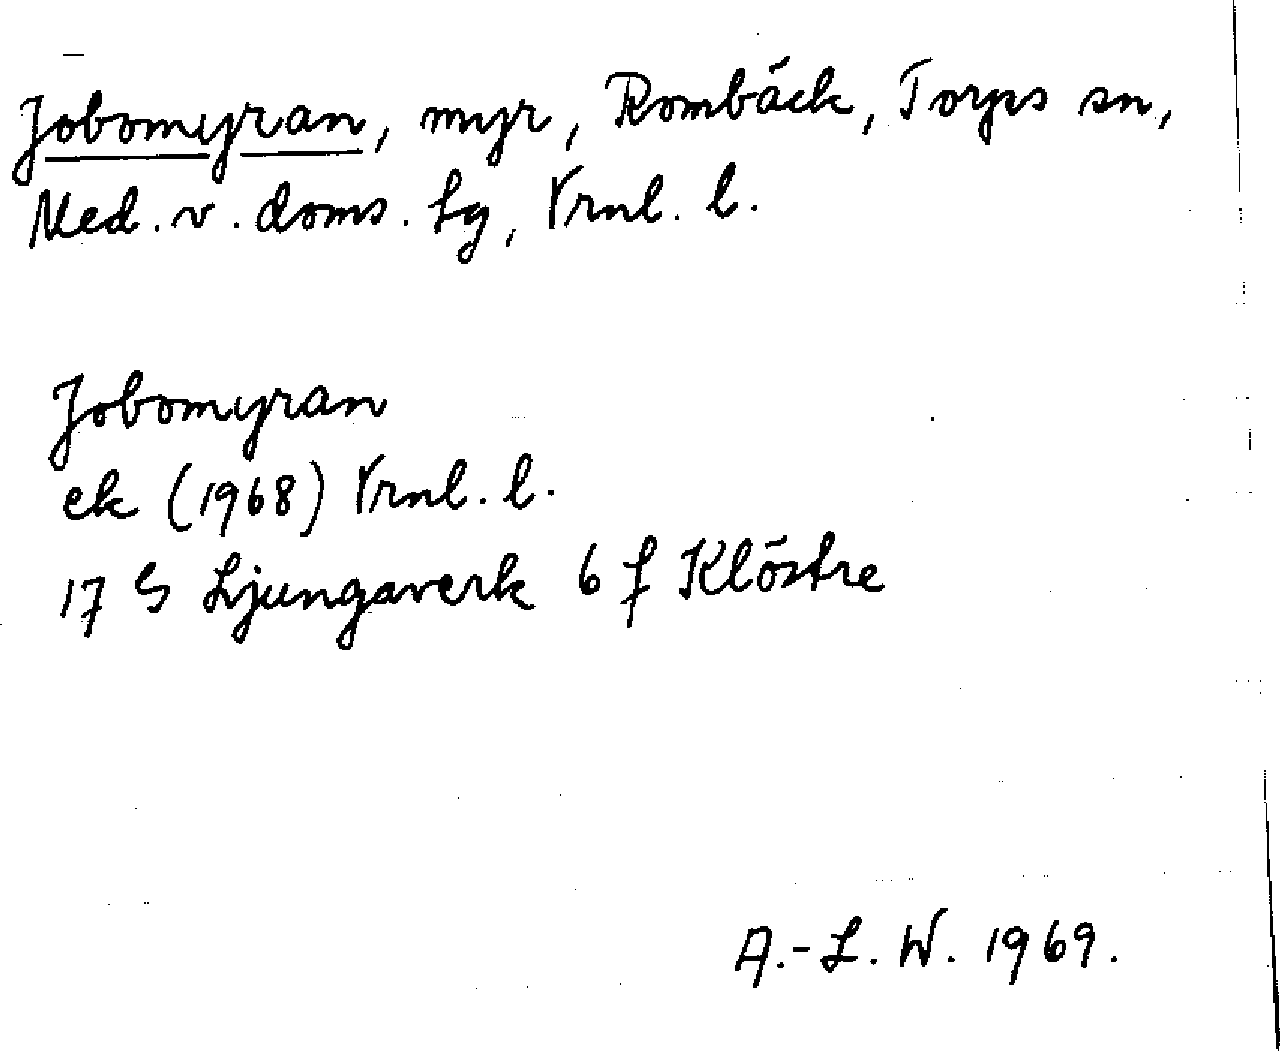 Jobomyran, myr, Rombäck, Torps sn,
Med. v. doms. lg, Vrnl. l.
Jobomyran
ek (1968) Vrnl. l.
17 G Ljungaverk 6 f Klöstre
A.-L. W. 1969.